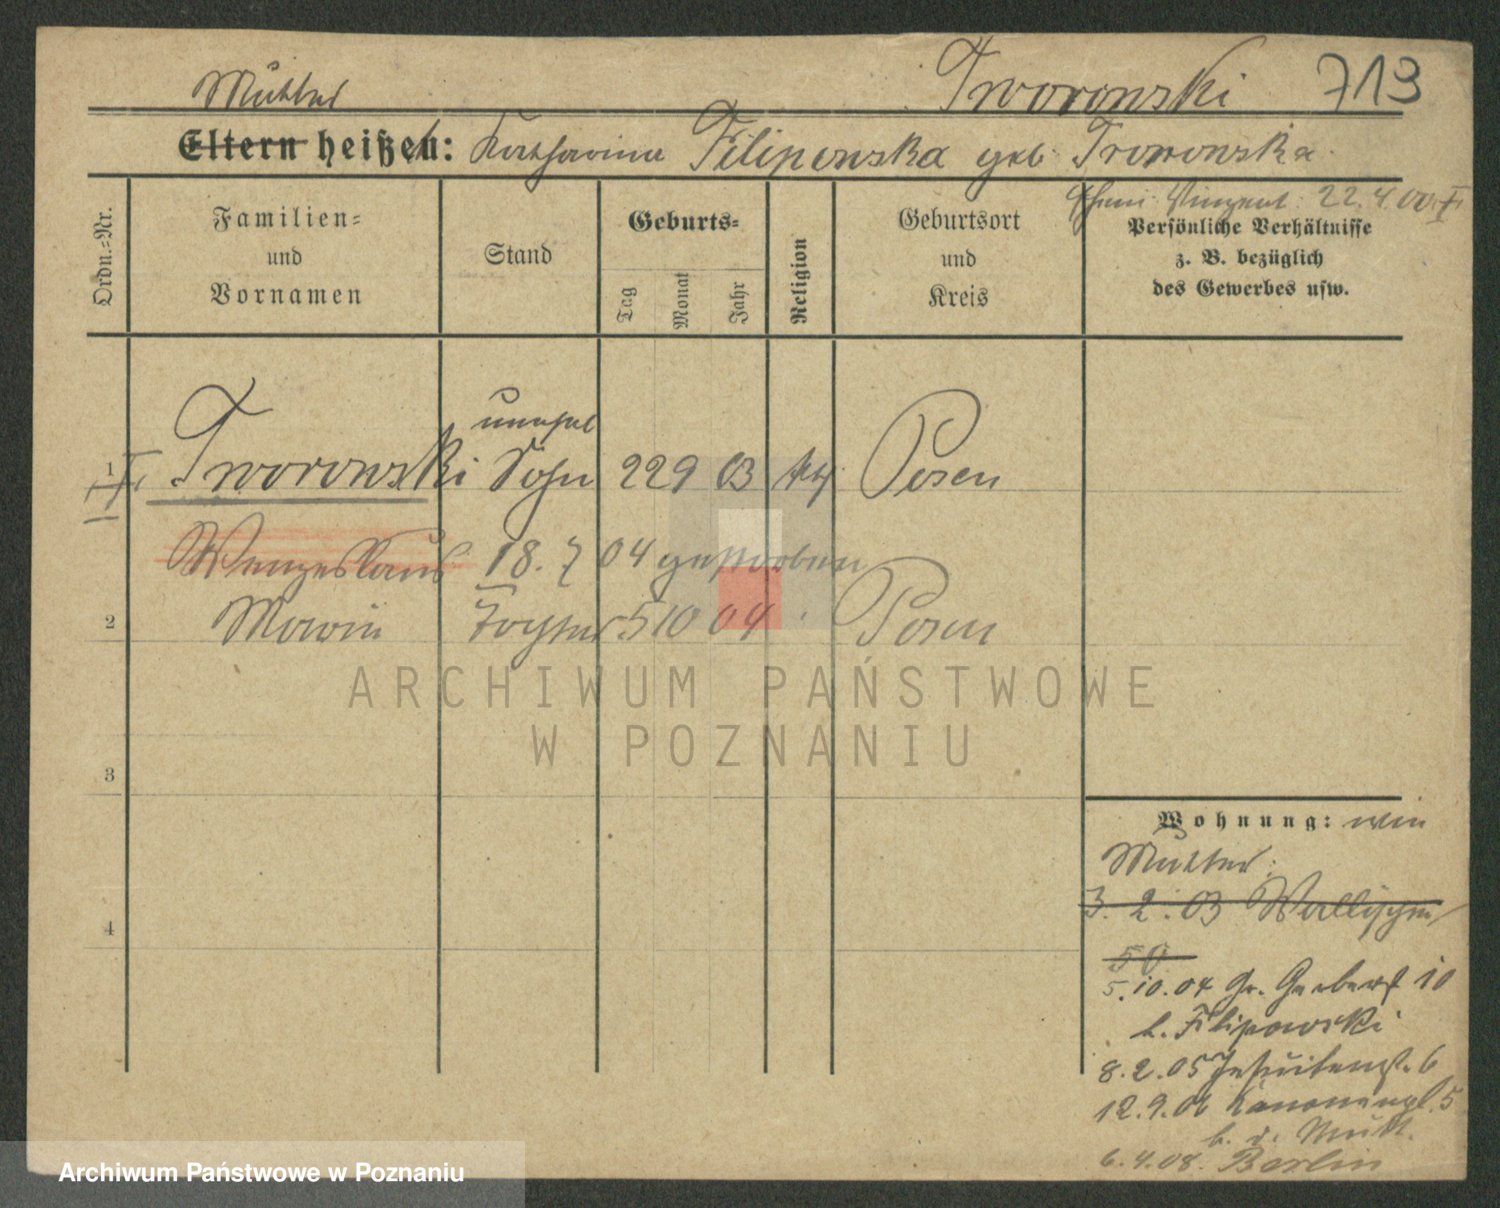 Tworowski 713
Mutter
Eltern heißen: Katharina Filipowska geb. Tworowska
Vinzent 22.4.00
Ordn.-Nr.
Familien-
und
Vornamen
Stand
Geburts-
Tag
Monat
Jahr
Religion
Geburtsort
und
Kreis
Persönliche Verhältnisse
z. B. bezüglich
des Gewerbes usw.
unehel
1 Tworowski Sohn 22 9 03 kth Posen
Wenzeslaus 18. 7 04 gestorben
2 Maria Tochter 5 10 04 Posen
3
4
Wohnung: wie
Mutter:
3. 2. 03 Wallischei
50
5. 10. 04 Gr. Gerberst 10
b. Filipowski
8. 2. 05 Jesuitenst. 6
12. 9. 06 Kanonenpl. 5
b. d. Mutt.
6. 4. 08. Berlin
ARCHIWUM PAŃSTWOWE
W POZNANIU
Archiwum Państwowe w Poznaniu